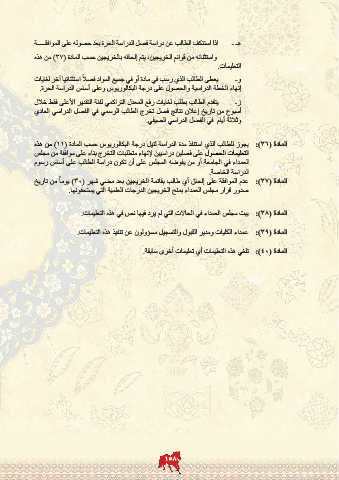 هـ - اذا استنكف الطالب عن دراسة فصل الدراسة الحرة بعد حصوله على الموافقـــــة
واستثنائه من قوائم الخريجين، يتم إلحاقه بالخريجين حسب المادة (٣٧) من هذه
التعليمات.
و- يعطى الطالب الذي رسب في مادة أو في جميع المواد فصلاً استثنائياً آخر لغايات
إنهاء الخطة الدراسية والحصول على درجة البكالوريوس وعلى أساس الدراسة الحرة.
ز- يتقدم الطالب بطلب لغايات رفع المعدل التراكمي لفئة التقدير الأعلى فقط خلال
أسبوع من تاريخ إعلان نتائج فصل تخرج الطالب الرسمي في الفصل الدراسي العادي
وثلاثة أيام في الفصل الدراسي الصيفي.
المادة (٣٦): يجوز للطالب الذي استنفذ مدة الدراسة لنيل درجة البكالوريوس حسب المادة (١١) من هذه
التعليمات الحصول على فصلين دراسيين لإنهاء متطلبات التخرج بناء على موافقة من مجلس
العمداء في الجامعة أو من يفوضه المجلس على أن تكون دراسة الطالب على أساس رسوم
الدراسة الخاصة.
المادة (٣٧): عدم الموافقة على إلحاق أي طالب بقائمة الخريجين بعد مضي شهر (٣٠) يوماً من تاريخ
صدور قرار مجلس العمداء بمنح الخريجين الدرجات العلمية التي يستحقونها.
المادة (٣٨): يبت مجلس العمداء في الحالات التي لم يرد فيها نص في هذه التعليمات.
المادة (٣٩): عمداء الكليات ومدير القبول والتسجيل مسؤولون عن تنفيذ هذه التعليمات.
المادة (٤٠): تلغي هذه التعليمات أي تعليمات أخرى سابقة.
١٥٨